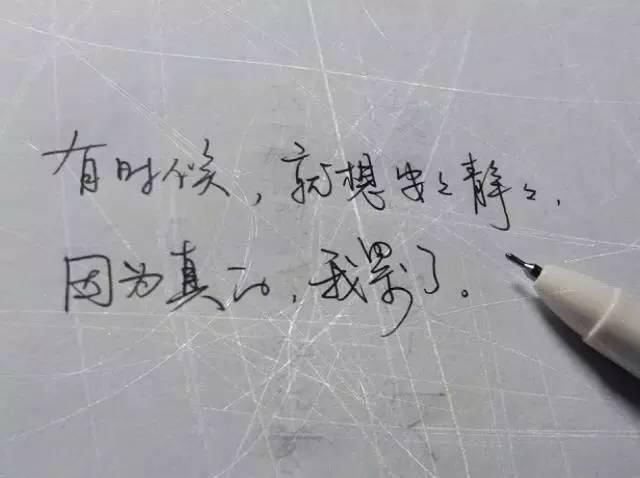 有时候，就想安安静静，
因为真的，我累了。